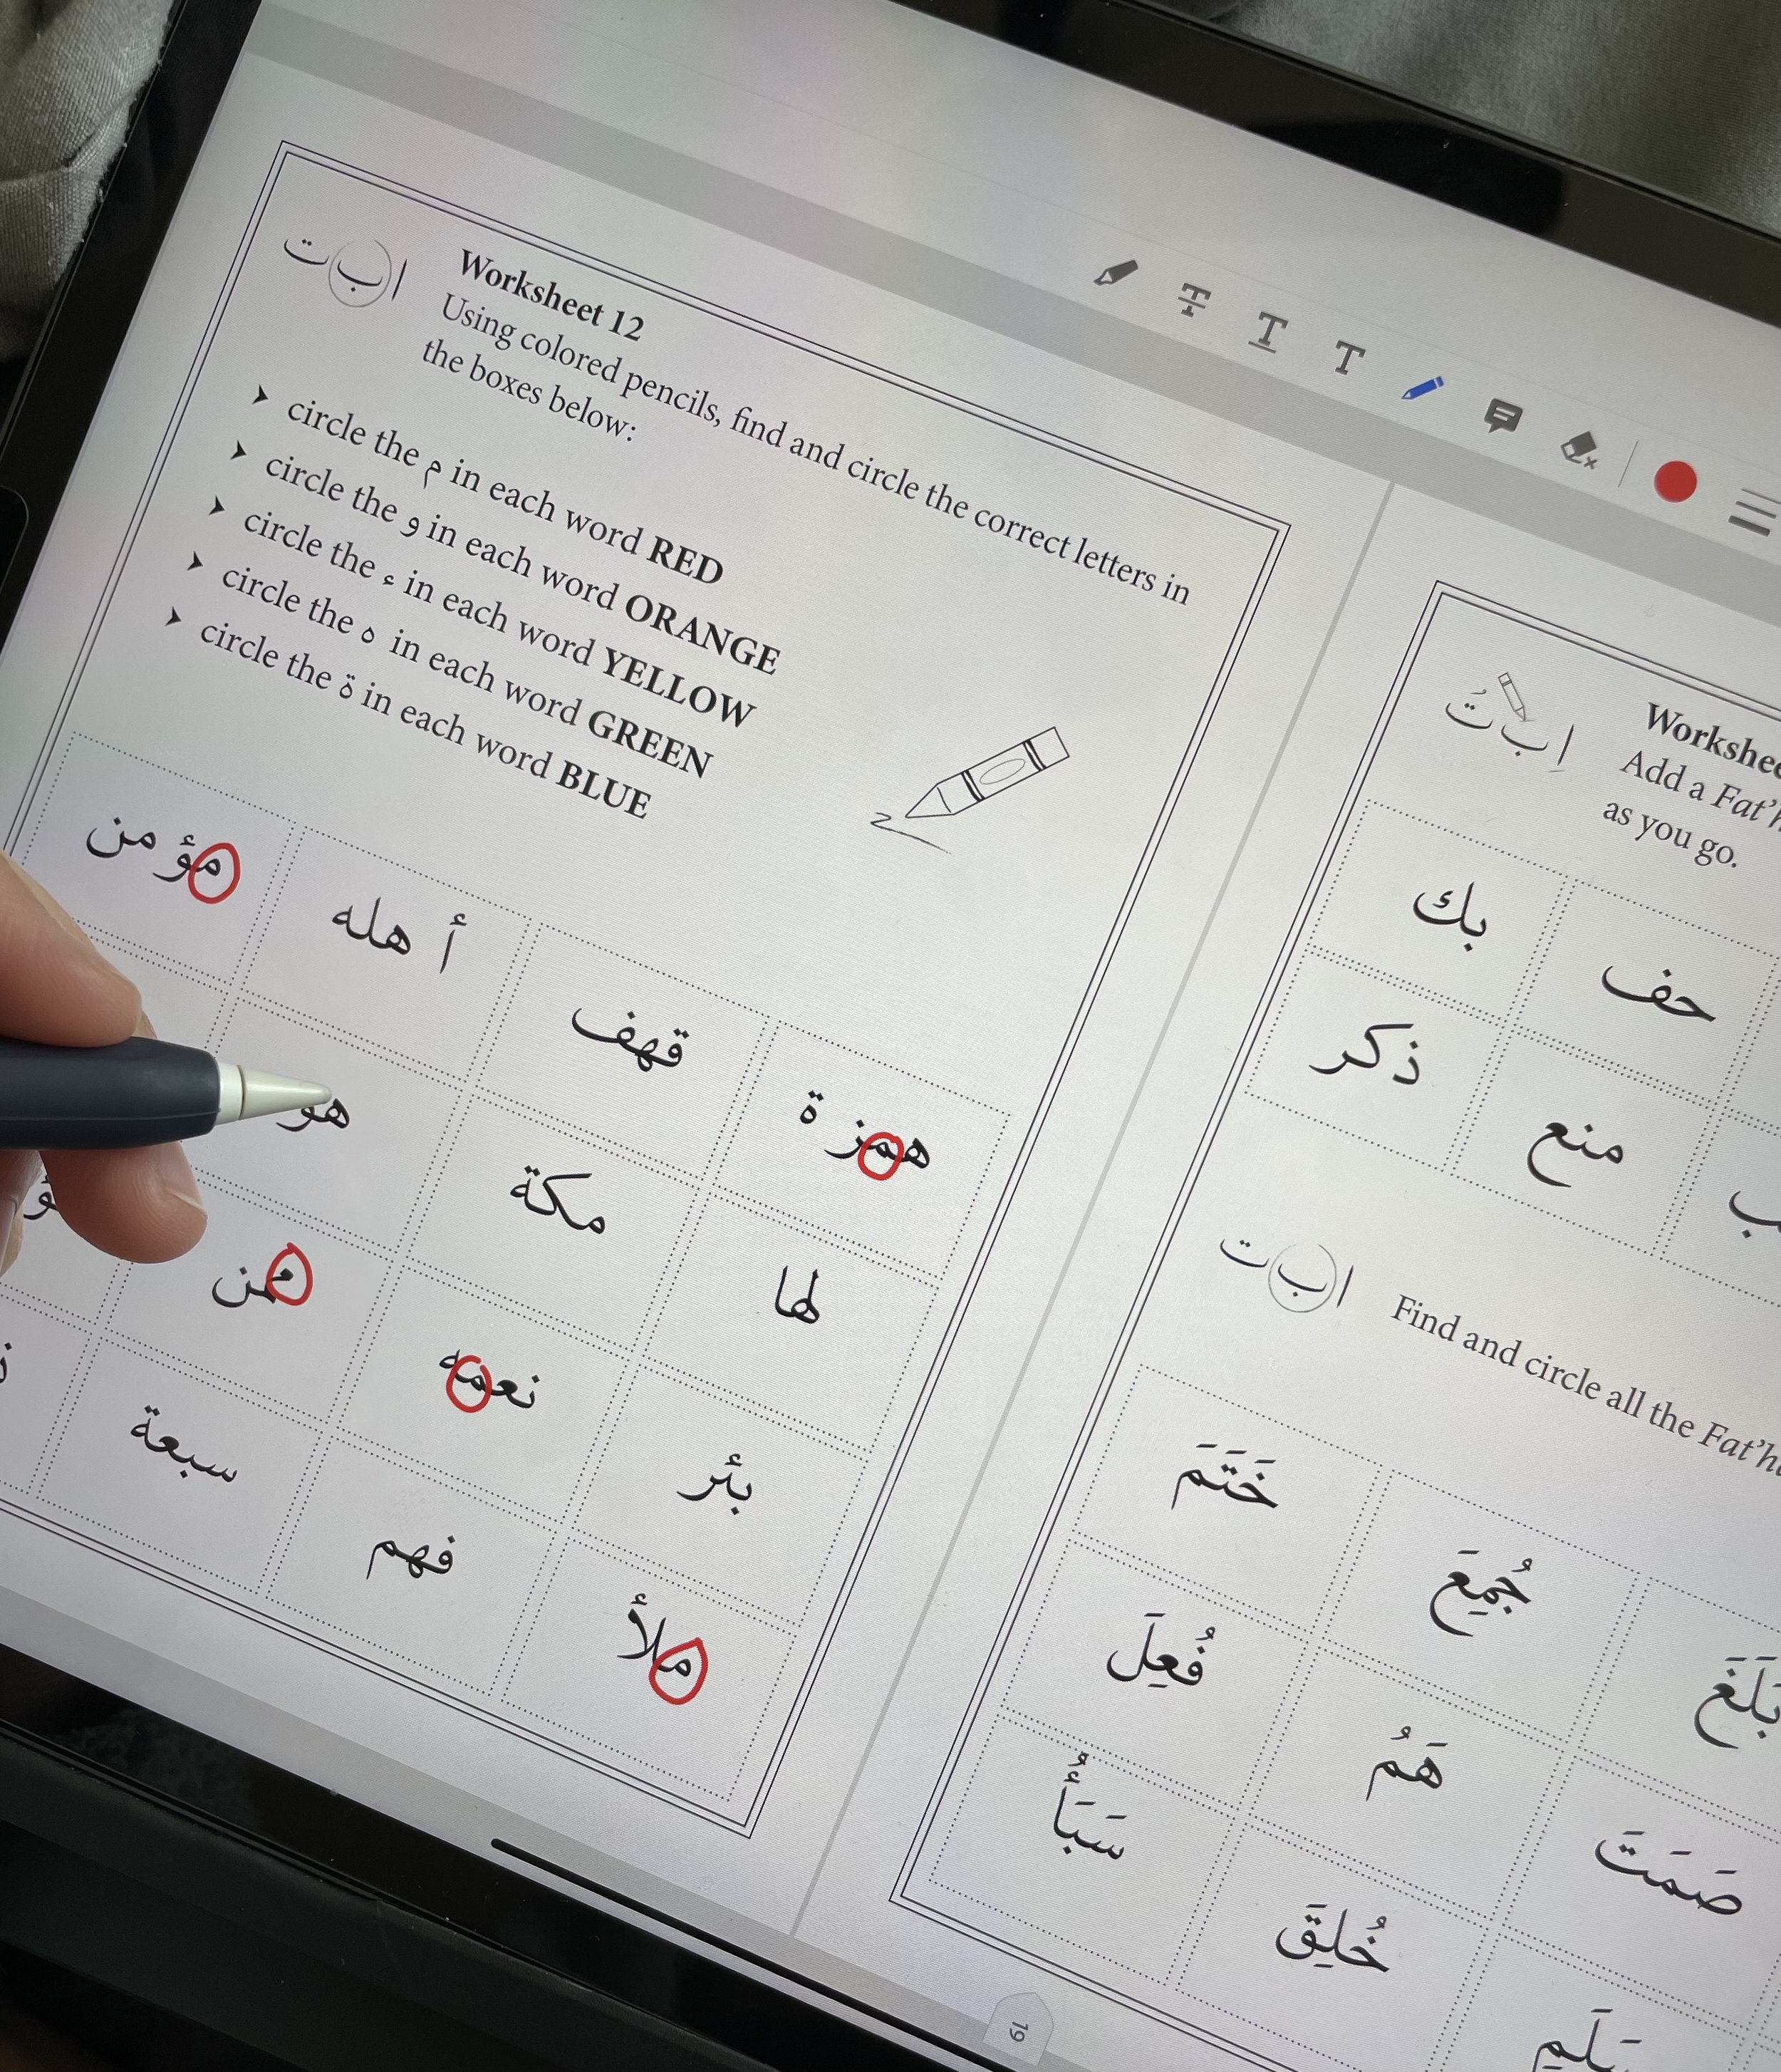 ا ب ت
Worksheet 12
Using colored pencils, find and circle the correct letters in
the boxes below:
➤ circle the م in each word RED
➤ circle the و in each word ORANGE
➤ circle the ء in each word YELLOW
➤ circle the ه in each word GREEN
➤ circle the ة in each word BLUE
همز ة قهف أ هله مؤ من
لها مكة هو
بئر نعمه من
ملأ فهم سبعة
اِ ب تُ
Add a
as you go.
حف بك
منع ذكر
ا ب ت
Find and circle all the
خَتَمَ
جُمِعَ
بَلَغَ
فُعِلَ
هَمُ
صَمَتَ
سَبَأُ
خُلِقَ
19
T
T
T